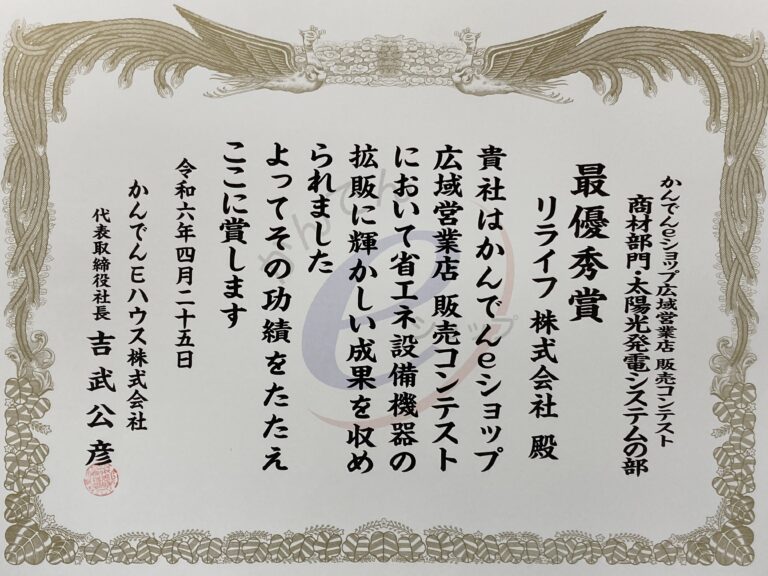 かんでんeショップ広域営業店 販売コンテスト
商材部門・太陽光発電システムの部
最優秀賞
リライフ 株式会社 殿
貴社はかんでんeショップ
広域営業店 販売コンテスト
において省エネ設備機器の
拡販に輝かしい成果を収め
られました
よってその功績をたたえ
ここに賞します
令和六年四月二十五日
かんでんEハウス株式会社
代表取締役社長 吉武公彦
かんでん
e
ショップ